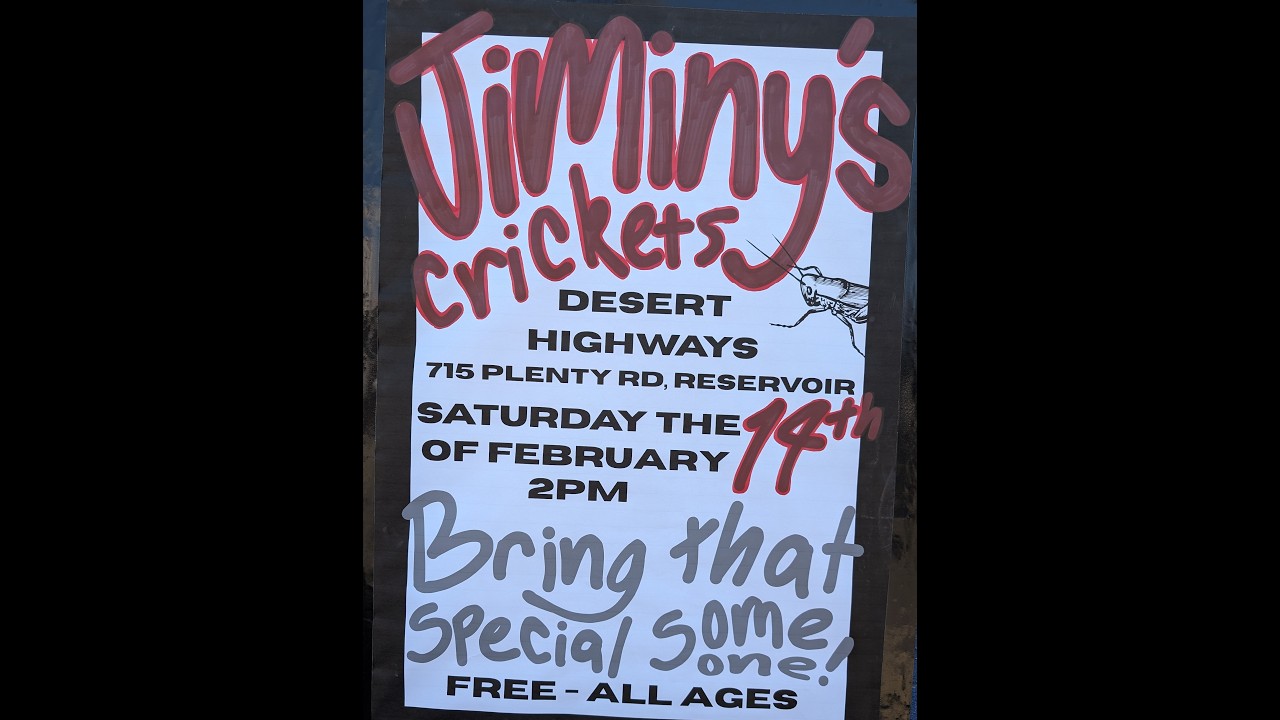 JiMiny's
crickets
DESERT
HIGHWAYS
715 PLENTY RD, RESERVOIR
SATURDAY THE 14th
OF FEBRUARY
2PM
Bring that
special some
one!
FREE - ALL AGES